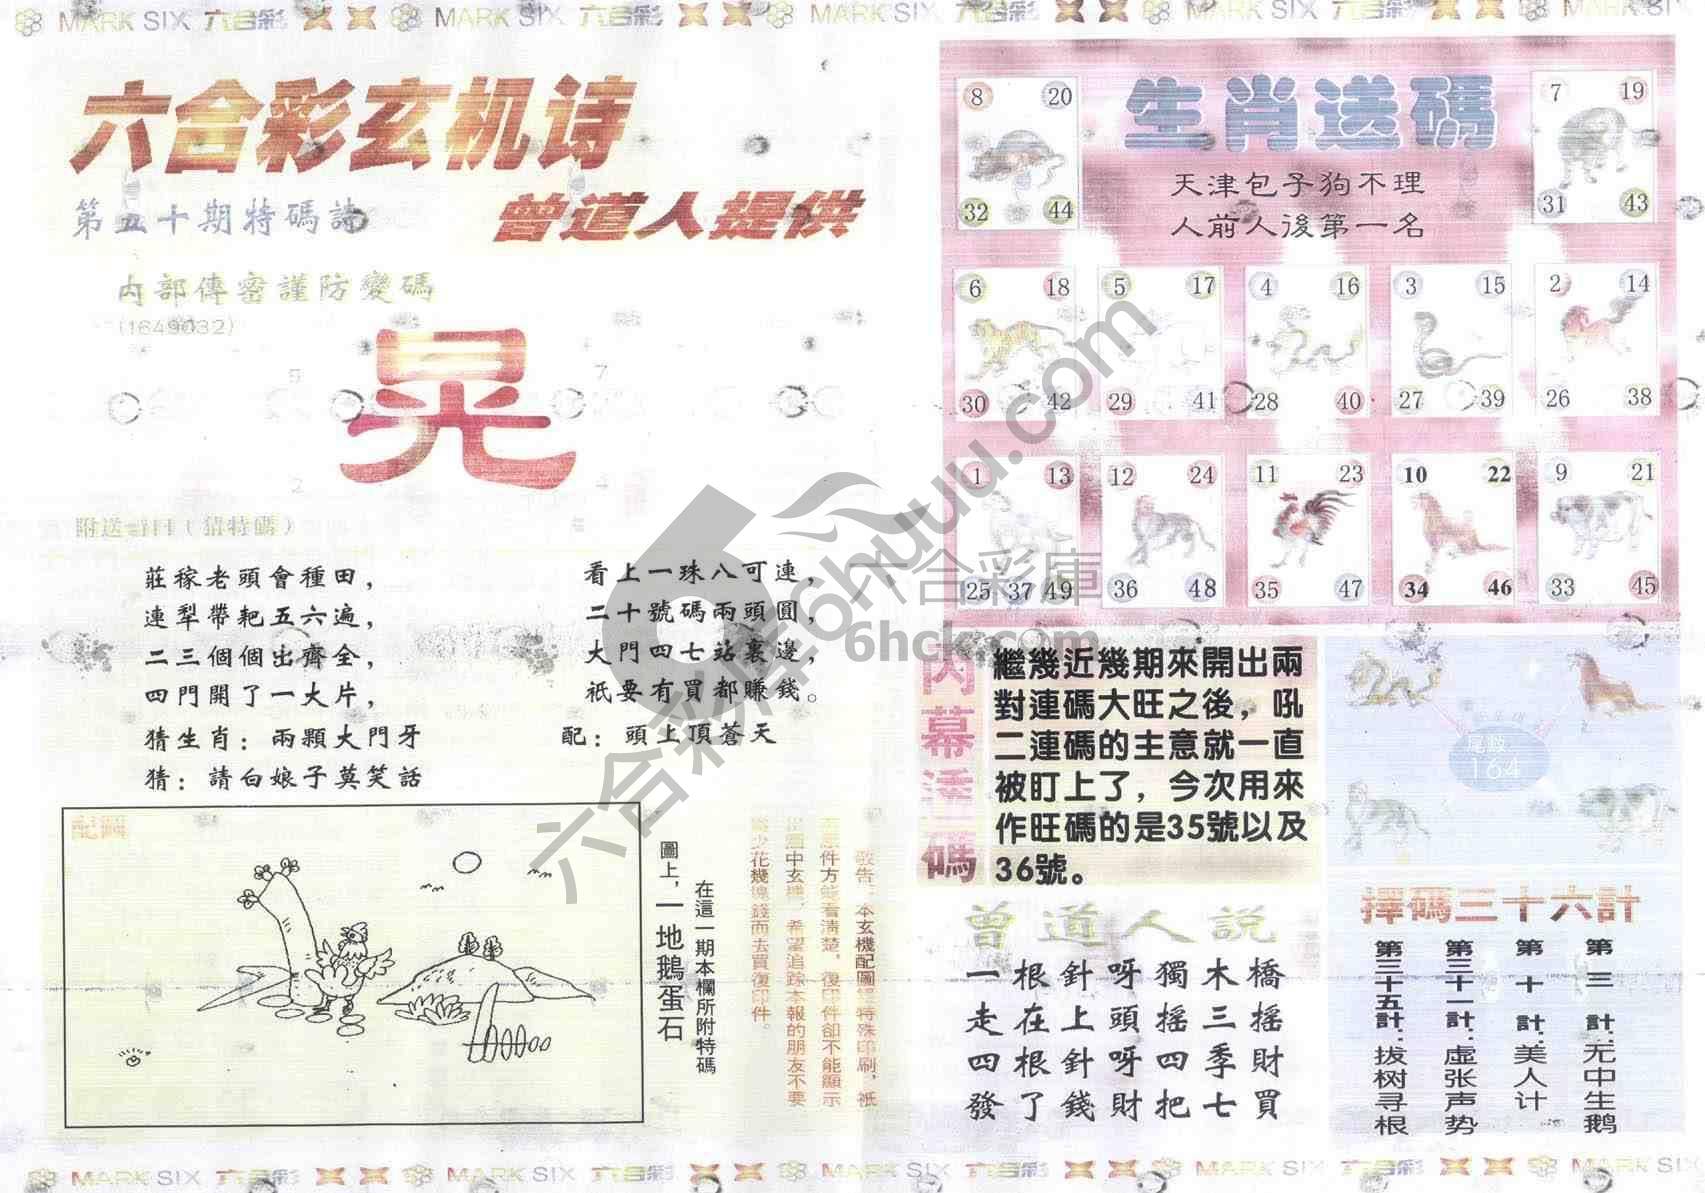 MARK SIX 六合彩 MARK SIX 六合彩 MARK SIX 六合彩 MARK SIX 六合彩 MARK SIX
六合彩玄机诗
第五十期特碼詩
曾道人提供
内部傳密謹防變碼
(1649032)
晃
5 7
2 4
附送 (猜特碼)
莊稼老頭會種田，
連犁帶耙五六遍，
二三個個出齊全，
四門開了一大片，
猜生肖：兩顆大門牙
猜：請白娘子莫笑話
看上一珠八可連，
二十號碼兩頭圓，
大門四七站裏邊，
祇要有買都賺錢。
配：頭上頂蒼天
配圖
在這一期本欄所附特碼
圖上，一地鵝蛋石
敬告：本玄機配圖 特殊印刷，祇
原件方能看清楚，復印件卻不能顯示
出圖中玄機，希望追踪本報的朋友不要
少花幾塊錢而去買復印件。
生肖送碼
天津包子狗不理
人前人後第一名
8 20
32 44
7 19
31 43
6 18 5 17 4 16 3 15 2 14
30 42 29 41 28 40 27 39 26 38
1 13 12 24 11 23 10 22 9 21
25 37 49 36 48 35 47 34 46 33 45
内幕透碼
繼幾近幾期來開出兩
對連碼大旺之後，吼
二連碼的主意就一直
被盯上了，今次用來
作旺碼的是35號以及
36號。
尾數:
164
曾道人説
一根針呀獨木橋
走在上頭搖三搖
四根針呀四季財
發了錢財把七買
擇碼三十六計
第三計：无中生鹅
第十計：美人计
第三十一計：虚张声势
第三十五計：拔树寻根
六合彩库 6hcuu.com
六合彩庫
6hck.com
MARK SIX 六合彩 MARK SIX 六合彩 MARK SIX 六合彩 MARK SIX 六合彩 MARK SIX